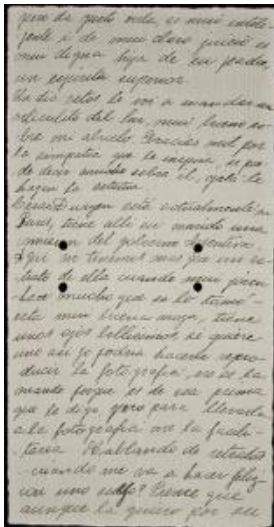 pero da gusto verla, es muy intele-
gente i de muy claro juicio es
muy digna hija de su padre,
un espíritu superior
Un dia de estos le voy a mandar un
articulito del Sur, muy bueno so-
bre mi abuelo Gracias mil por
la simpatia que le inspira, se pue-
de decir mucho sobre él, ojalá le
hagan la estatua.
César Duayen está actualmente en
Paris, tiene alli su marido una
mision del gobierno Argentino,
Aqui no tenemos mas que un re-
trato de ella cuando muy joven
hace mucho que no lo tomo
está muy buena moza, tiene
unos ojos bellisimos, se quiere
uno asi yo podria hacerle repro-
ducir la fotografia, no se la
mando porque es de una prima
que le digo pero para llevarla
a la fotografia me la facili-
taria Hablando de retratos
cuando me va a hacer feliz
con uno suyo? Piense que
aunque la quiero por su